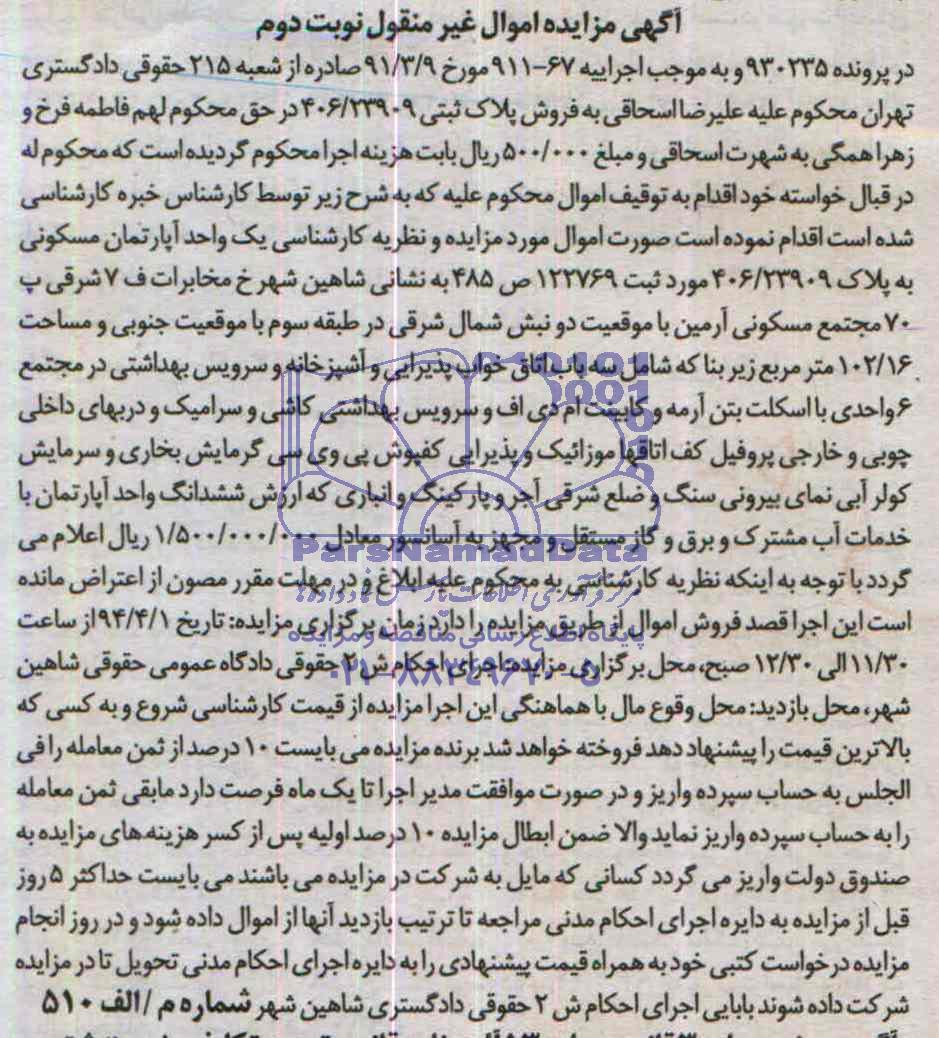 آگهی مزایده اموال غیر منقول نوبت دوم
در پرونده ۹۳۰۲۳۵ و به موجب اجراییه ۶۷-۹۱۱ مورخ ۹۱/۳/۹ صادره از شعبه ۲۱۵ حقوقی دادگستری
تهران محکوم علیه علیرضا اسحاقی به فروش پلاک ثبتی ۴۰۶/۲۳۹۰۹ در حق محکوم لهم فاطمه فرخ و
زهرا همگی به شهرت اسحاقی و مبلغ ۵۰۰/۰۰۰ ریال بابت هزینه اجرا محکوم گردیده است که محکوم له
در قبال خواسته خود اقدام به توقیف اموال محکوم علیه که به شرح زیر توسط کارشناس خبره کارشناسی
شده است اقدام نموده است صورت اموال مورد مزایده و نظریه کارشناسی یک واحد آپارتمان مسکونی
به پلاک ۴۰۶/۲۳۹۰۹ مورد ثبت ۱۲۲۷۶۹ ص ۴۸۵ به نشانی شاهین شهر خ مخابرات ف ۷ شرقی پ
۷۰ مجتمع مسکونی آرمین با موقعیت دو نبش شمال شرقی در طبقه سوم با موقعیت جنوبی و مساحت
۱۰۲/۱۶ متر مربع زیر بنا که شامل سه باب اتاق خواب پذیرایی و آشپزخانه و سرویس بهداشتی در مجتمع
۶ واحدی با اسکلت بتن آرمه و کابینت ام دی اف و سرویس بهداشتی کاشی و سرامیک و دربهای داخلی
چوبی و خارجی پروفیل کف اتاقها موزائیک و پذیرایی کفپوش پی وی سی گرمایش بخاری و سرمایش
کولر آبی نمای بیرونی سنگ و ضلع شرقی آجر و پارکینگ و انباری که ارزش ششدانگ واحد آپارتمان با
خدمات آب مشترک و برق و گاز مستقل و مجهز به آسانسور معادل ۱/۵۰۰/۰۰۰/۰۰۰ ریال اعلام می
ParsNamadData
گردد با توجه به اینکه نظریه کارشناسی به محکوم علیه ابلاغ و در مهلت مقرر مصون از اعتراض مانده
است این اجرا قصد فروش اموال از طریق مزایده را دارد زمان برگزاری مزایده: تاریخ ۹۴/۴/۱ از ساعت
پایگاه اطلاع رسانی مناقصه و مزایده
۱۱/۳۰ الی ۱۲/۳۰ صبح، محل برگزاری مزایده: اجرای احکام ش ۲ حقوقی دادگاه عمومی حقوقی شاهین
۰۲۱-۸۸۳۴۹۶۷۰-۵
شهر، محل بازدید: محل وقوع مال با هماهنگی این اجرا مزایده از قیمت کارشناسی شروع و به کسی که
بالاترین قیمت را پیشنهاد دهد فروخته خواهد شد برنده مزایده می بایست ۱۰ درصد از ثمن معامله را فی
الجلس به حساب سپرده واریز و در صورت موافقت مدیر اجرا تا یک ماه فرصت دارد مابقی ثمن معامله
را به حساب سپرده واریز نماید والا ضمن ابطال مزایده ۱۰ درصد اولیه پس از کسر هزینه های مزایده به
صندوق دولت واریز می گردد کسانی که مایل به شرکت در مزایده می باشند می بایست حداکثر ۵ روز
قبل از مزایده به دایره اجرای احکام مدنی مراجعه تا ترتیب بازدید آنها از اموال داده شود و در روز انجام
مزایده درخواست کتبی خود به همراه قیمت پیشنهادی را به دایره اجرای احکام مدنی تحویل تا در مزایده
شرکت داده شوند بابایی اجرای احکام ش ۲ حقوقی دادگستری شاهین شهر شماره م /الف ۵۱۰